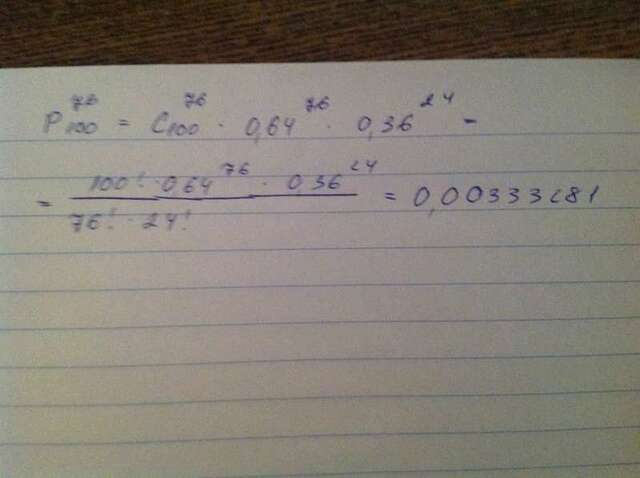 P₁₀₀⁷⁶ = C₁₀₀⁷⁶ · 0,64⁷⁶ · 0,36²⁴ =
= 100! · 0,64⁷⁶ · 0,36²⁴ / 76! · 24! = 0,00333281